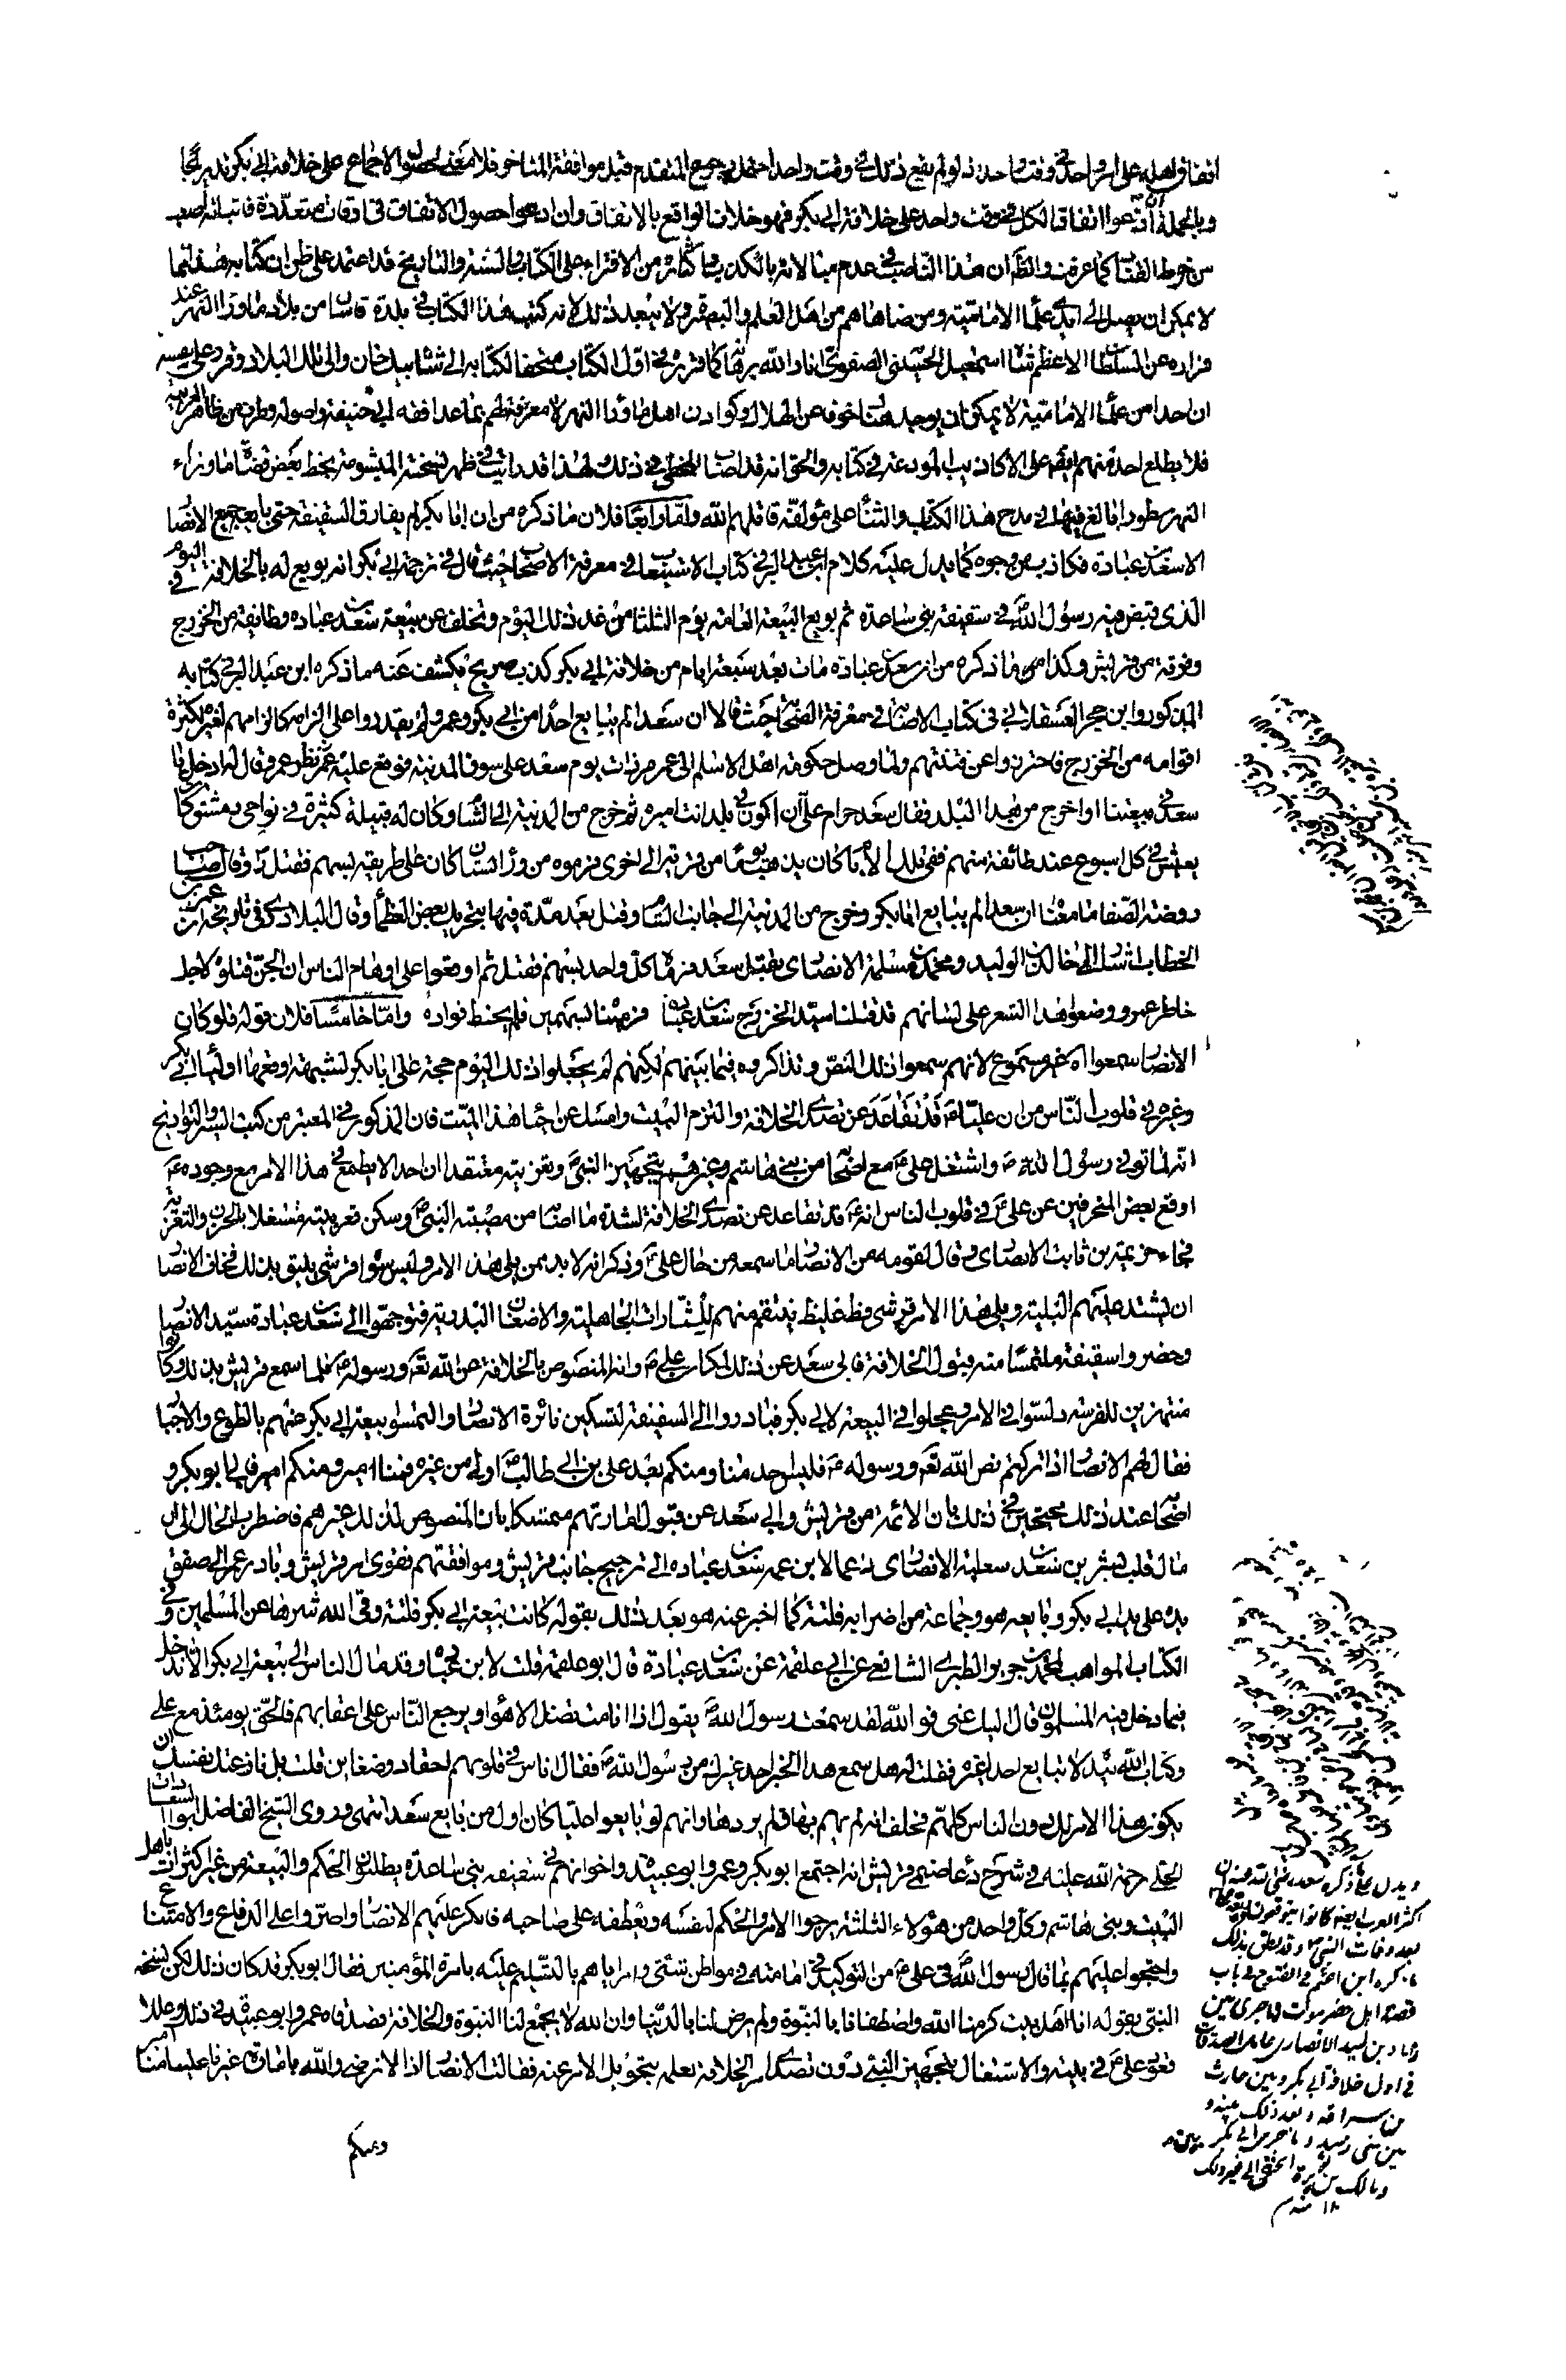 اتفاق اهله على امر واحد في وقت واحد اذ لو لم يقع ذلك في وقت واحد احتمل رجوع المتقدم قبل موافقة المتاخر فلا معنى لحصول الاجماع على خلافة ابي بكر تدريجا
وبالجملة ان ادعوا اتفاق الكل في وقت واحد على خلافة ابي بكر فهو خلاف الواقع بالاتفاق وان ادعوا حصول الاتفاق في اوقات متعددة فاثباته اصعب
من خرط القتاد كما عرفت والظاهر ان هذا الناصب في عدم مبالاته بالكذب واكثاره من الافتراء على الكتاب والسنة والتاريخ قد اعتمد على ظن ان كتابه هذا مما
لا يمكن ان يصل الى ايدي علماء الامامية ومن ضاهاهم من اهل العلم والبصيرة ولا يبعد ذلك لانه كتب هذا الكتاب في بلدة قاسان من بلاد ماوراء النهر عند
فراره عن السلطان الاعظم شاه اسمعيل الحسيني الصفوي انار الله برهانه كما قرره في اول الكتاب متحفا لكتابه الى شاهي بيك خان والي تلك البلاد وقرر على نفسه
ان احدا من علماء الامامية لا يمكن ان يوجد هناك خوفا عن الهلاك وكوادن اهل ماوراء النهر لا معرفة لهم بما عدا فقه ابي حنيفة واصوله وطرف من ظاهر العربية
فلا يطلع احد منهم ايضا على الاكاذيب المودعة في كتابه والحق انه قد اصاب الخطى في ذلك ولهذا قد رايت في ظهر نسخته الميشومة بخط بعض قضاة ماوراء
النهر سطورا بالغ فيها في مدح هذا الكتاب والثناء على مؤلفه قاتلهم الله واما رابعا فلان ما ذكره من ان ابا بكر لم يفارق السقيفة حتى بايعه جميع الانصار
الا سعد بن عبادة فكاذب من وجوه كما يدل عليه كلام ابن عبد البر في كتاب الاستيعاب في معرفة الاصحاب حيث قال في ترجمة ابي بكر انه بويع له بالخلافة في اليوم
الذي قبض فيه رسول الله في سقيفة بني ساعدة ثم بويع البيعة العامة يوم الثلثا من غد ذلك اليوم وتخلف عن بيعته سعد بن عبادة وطائفة من الخزرج
وفرقة من قريش وكذا ما ذكره من ان سعد بن عبادة مات بعد سبعة ايام من خلافة ابي بكر كذب صريح يكشف عنه ما ذكره ابن عبد البر في كتابه
المذكور وابن حجر العسقلاني في كتاب الاصابة في معرفة الصحابة حيث قالا ان سعدا لم يبايع احدا من ابي بكر وعمر ولم يقدروا على الزامه كالزامهم لغيره لكثرة
اقوامه من الخزرج فاحترزوا عن فتنتهم ولما وصل حكومة اهل الاسلام الى عمر مر ذات يوم سعد على سوق المدينة فوقع عليه نظر عمر وقال له ادخل يا
سعد في بيعتنا او اخرج من هذا البلد فقال سعد حرام علي ان اكون في بلد انت اميره ثم خرج من المدينة الى الشام وكان له قبيلة كثيرة في نواحي دمشق كان
يعيش في كل اسبوع عند طائفة منهم ففي تلك الايام كان يذهب يوما من قرية الى اخرى فرموه من وراء بستان كان على طريقه بسهم فقتل وقال صاحب
روضة الصفا ما معناه ان سعدا لم يبايع ابا بكر وخرج من المدينة الى جانب الشام وقتل بعد مدة فيها بتحريك بعض العظماء وقال البلاذري في تاريخه ان عمر بن
الخطاب اشار الى خالد بن الوليد ومحمد بن مسلمة الانصاري بقتل سعد فرماه كل واحد بسهم فقتل ثم اوقعوا على اوهام الناس ان الجن قتلوه لاجل
خاطر عمر ووضعوا هذا الشعر على لسانهم قد قتلنا سيد الخزرج سعد بن عبادة فرميناه بسهمين فلم يخط فؤاده واما خامسا فلان قوله فلو كان
الانصار سمعوا اه غير مسموع لانهم سمعوا ذلك النص وتذاكروه فيما بينهم لكنهم لم يجعلوا ذلك اليوم حجة على ابي بكر لشبهة اوقعها اولياء ابي بكر
وغيره في قلوب الناس من ان عليا ع قد تقاعد عن تصدي الخلافة والتزم البيت وامسك عن احياء هذا الميت فان المذكور في المعتبر من كتب السير والتواريخ
انه لما توفي رسول الله ص واشتغل علي ع مع اصحابه من بني هاشم وغيرهم بتجهيز النبي وتعزيته معتقدا ان احدا لا يطمع في هذا الامر مع وجوده ع
اوقع بعض المنحرفين عن علي ع في قلوب الناس انه ع قد تقاعد عن تصدي الخلافة لشدة ما اصابه من مصيبة النبي وسكن قعر بيته مشتغلا بالحزن والتعزية
فجاء خزيمة بن ثابت الانصاري وقال لقومه من الانصار ما سمعه من حال علي ع وذكر انه لا بد ممن يلي هذا الامر وليس سواه قرشي يليق بذلك فخاف الانصار
ان يشتد عليهم البلية ويلي هذا الامر قرشي فظ غليظ ينتقم منهم للثارات الجاهلية والاضغان البدرية فتوجهوا الى سعد بن عبادة سيد الانصار
وحضروا سقيفته ملتمسا منه قبول الخلافة فابى سعد عن ذلك لمكان علي ع وانه المنصوص بالخلافة من الله تع ورسوله ص فلما سمع قريش بذلك وكانوا
منتهزين للفرصة دلسوا في الامر وعجلوا في البيعة لابي بكر فبادروا الى السقيفة لتسكين نائرة الانصار والتمسوا بيعة ابي بكر عنهم بالطوع والاجبار
فقال لهم الانصار اذا تركتم نص الله تع ورسوله ص فليس احد منا ومنكم بعد علي بن ابي طالب ع اولى من غيره فمنا امير ومنكم امير فابى ابو بكر و
اصحابه عند ذلك محتجين في ذلك بان الائمة من قريش وابى سعد عن قبول امارتهم متمسكا بان المنصوص لذلك غيرهم فاضطرب الحال الى ان
مال قلب بشير بن سعد بن ثعلبة الانصاري رغما لابن عمه سعد بن عبادة الى ترجيح جانب قريش وموافقتهم فقوى امر قريش وبادر عمر الى صفق
يده على يد ابي بكر وبايعه هو وجماعة من اضرابه فلتة كما اخبر عنه هو بعد ذلك بقوله كانت بيعة ابي بكر فلتة وقى الله شرها عن المسلمين وفي
الكتاب المواهب لمحمد بن جرير الطبري الشافعي عن ابي علقمة عن سعد بن عبادة قال ابو علقمة قلت لابن عبادة وقد مال الناس الى بيعة ابي بكر الا تدخل
فيما دخل فيه المسلمون قال اليك عني فو الله لقد سمعت رسول الله ص يقول اذا انا مت تضل الاهواء ويرجع الناس على اعقابهم فالحق يومئذ مع علي
وكتاب الله بيده لا نبايع احدا غيره فقلت له هل سمع هذا الخبر احد غيرك من رسول الله ص فقال اناس في قلوبهم احقاد وضغائن قلت بل نازعتك نفسك ان
يكون هذا الامر لك دون الناس كلهم فحلف انه لم يهم بها ولم يردها وانهم لو بايعوا عليا كان اول من بايع سعد انتهى وروى الشيخ الفاضل ابو السعادات
الحلي رحمة الله عليه في شرح دعا صنمي قريش انه اجتمع ابو بكر وعمر وابو عبيدة واخوانهم في سقيفة بني ساعدة يطلبون الحكم والبيعة من غير اكتراث باهل
البيت وبني هاشم وكل واحد من هؤلاء الثلثة يرجوا الامر والحكم لنفسه ويعطفه على صاحبه فانكر عليهم الانصار واصروا على الدفاع والامتناع
واحتجوا عليهم بما قال رسول الله في علي ع من التوكيد في امامته في مواطن شتى وامره اياهم بالتسليم عليه بامرة المؤمنين فقال ابو بكر قد كان ذلك لكن نسخه
النبي بقوله انا اهل بيت كرمنا الله واصطفانا بالنبوة ولم يرض لنا بالدنيا وان الله لا يجمع لنا النبوة والخلافة فصدقاه عمر وابو عبيدة في ذلك وعللا
قعود علي ع في بيته والاشتغال بتجهيز النبي دون تصدي امر الخلافة بعلمه بتحويل الامر عنه فقالت الانصار اذا لا نرضى والله بامارة غيرنا علينا منا امير
ومنكم
ويدل على ما ذكره سعد رضي الله عنه ان
اكثر العرب ايضا كانوا يتوقعون
بعد وفات النبي وقد نطق بذلك
ما ذكره ابن اعثم في الفتوح في باب
قصة اهل حضرموت وما جرى بين
زياد بن لبيد الانصاري عامل الصدقات
في اول خلافة ابي بكر وبين حارث
بن سراقة وبعد ذلك بينه و
بين بني وما جرى ابي بكر بين
ومالك بن نويرة الحنفي الى غير ذلك
١٨ منه